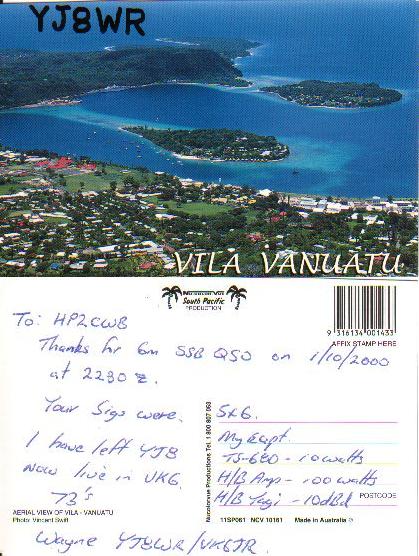 YJ8WR
VILA VANUATU
South Pacific
PRODUCTION
9 316134 001433
AFFIX STAMP HERE
To: HP2CWB
Thanks for 6m SSB QSO on 1/10/2000
at 2230 z.
Your Sigs were.
I have left YJ8
Now live in VK6.
73's
Wayne YJ8WR/VK6JR.
5x6.
My Eqpt.
TS-680 - 10 watts
H/B Amp - 100 watts
H/B Yagi - 10dBd
POSTCODE
AERIAL VIEW OF VILA - VANUATU
Photo: Vincent Swift
11SP061 NCV 10161 Made in Australia